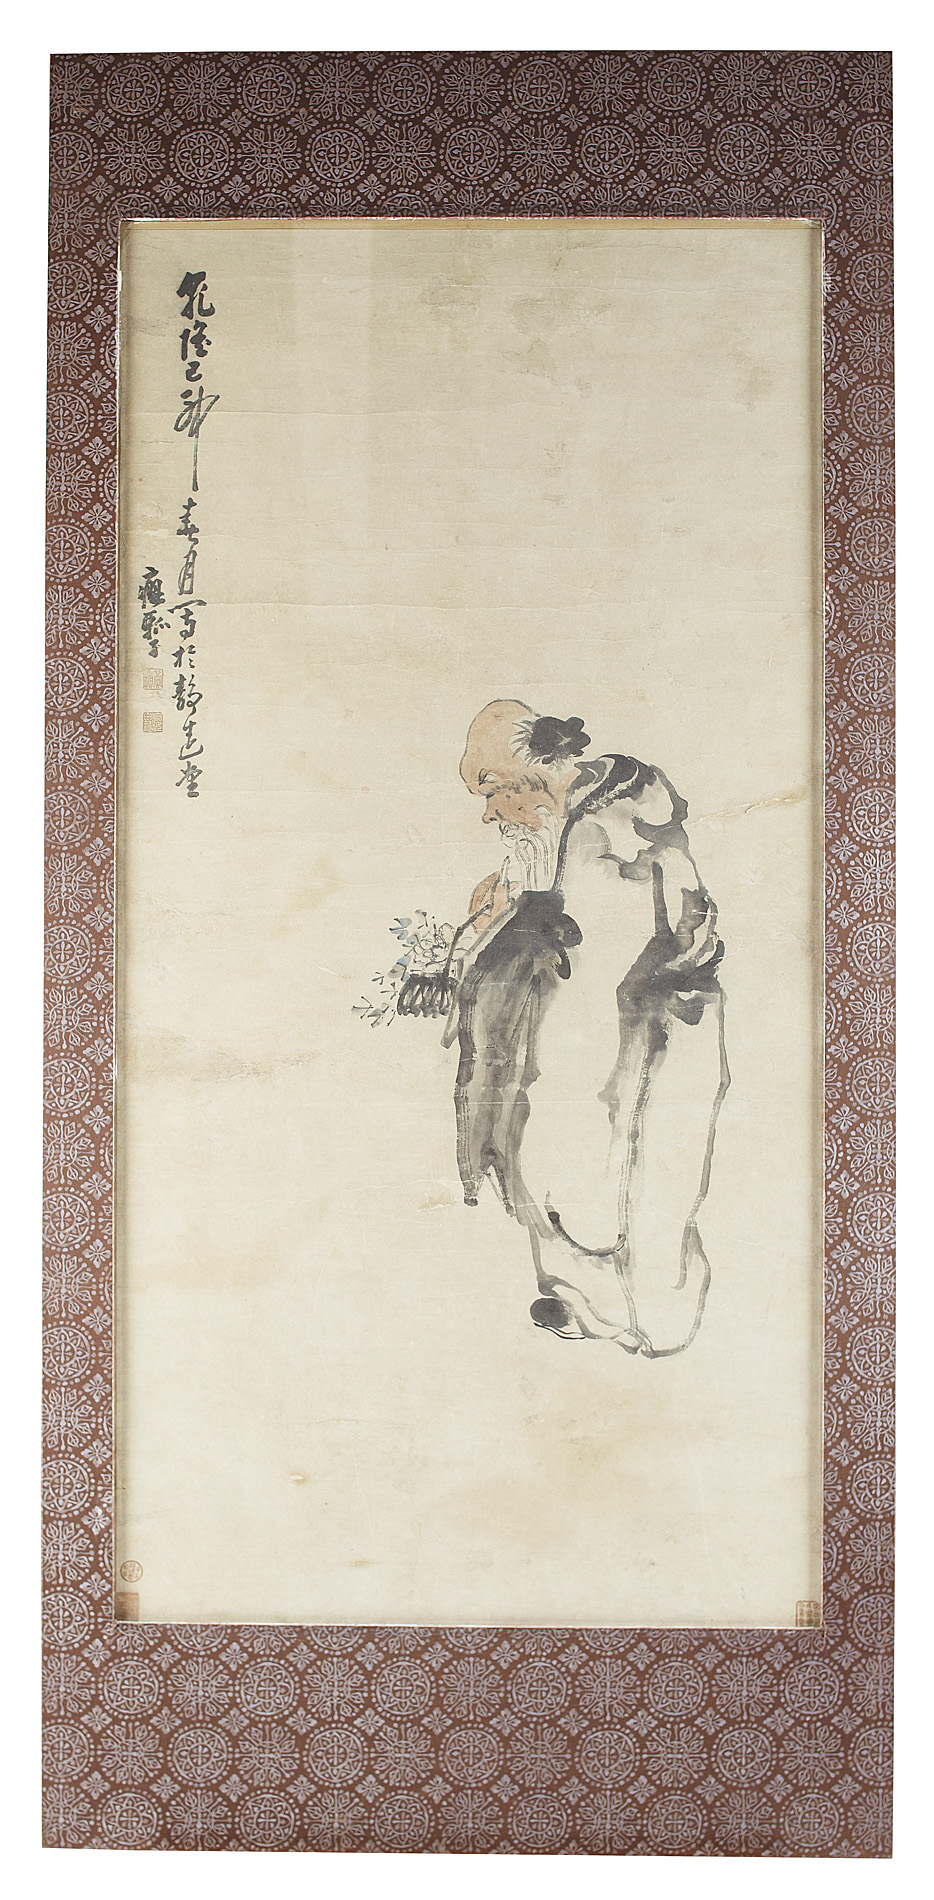 乾隆己卯春月寫於靜遠堂
癭瓢子